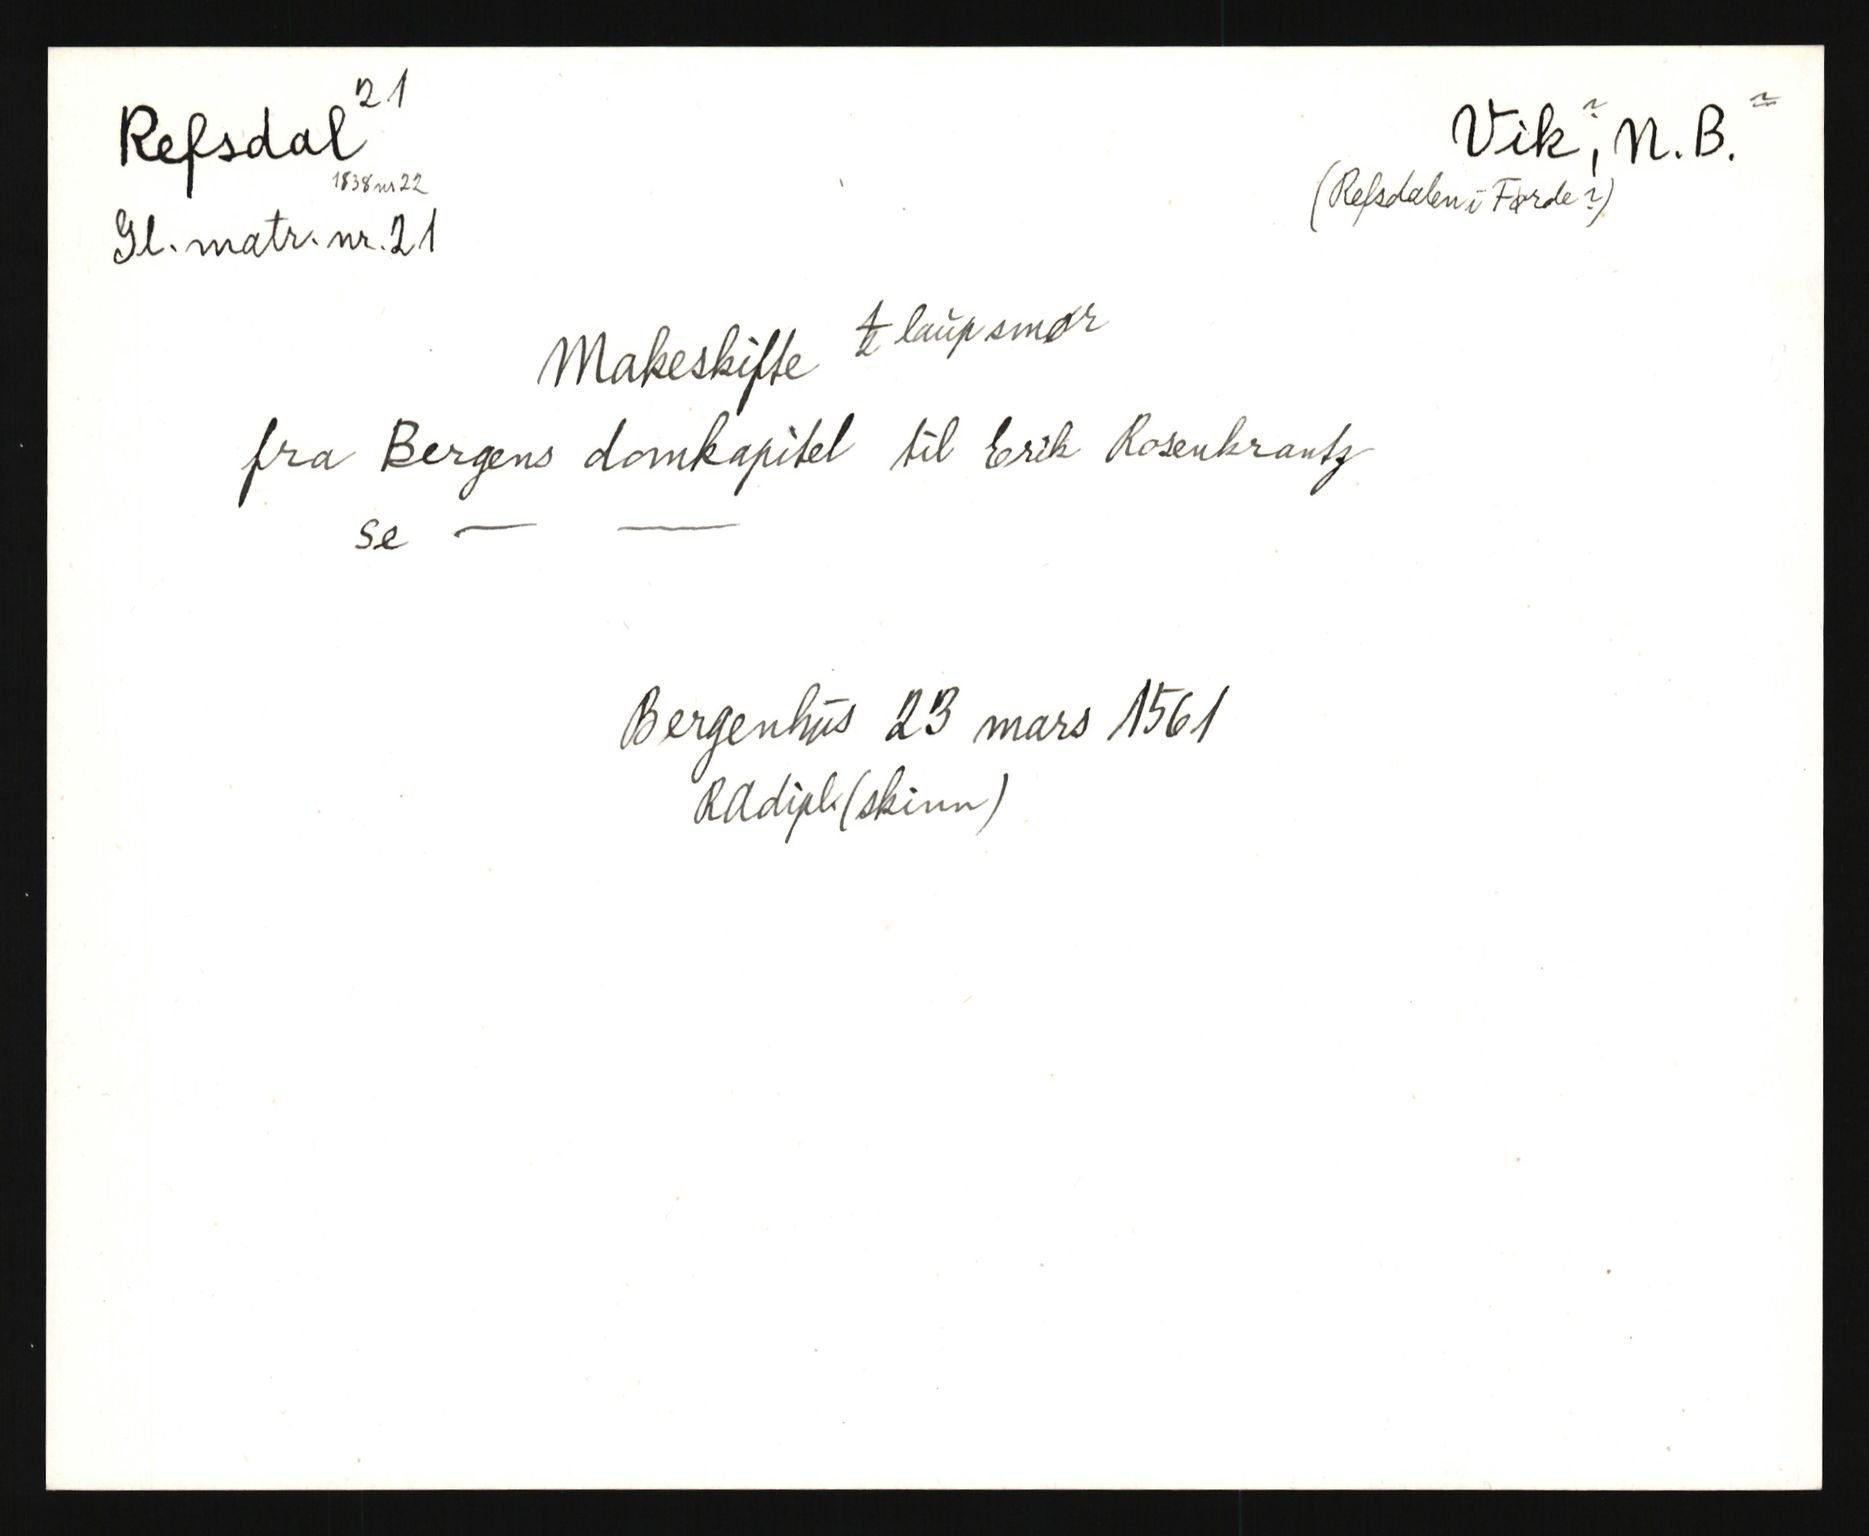 Refsdal 21
1838 nr 22
Gl. matr. nr. 21
Vik?, N. B. ?
(Refsdalen i Førde?)
Makeskifte ½ laup smør
fra Bergens domkapitel til Erik Rosenkrantz
se — —
Bergenhus 23 mars 1561
RAdipl. (skinn)